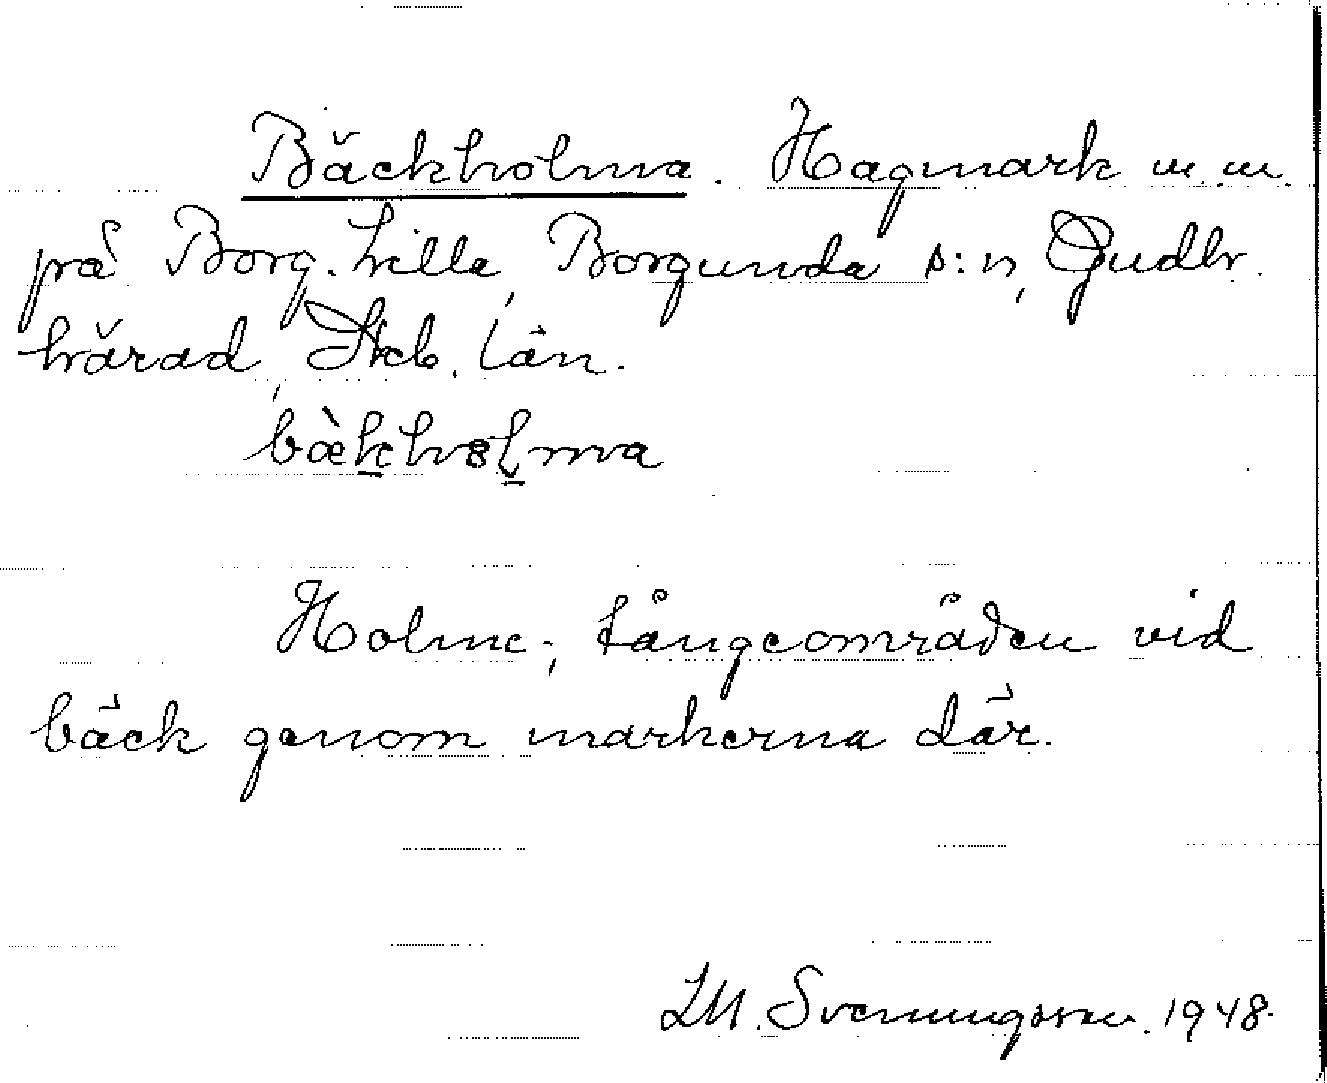 Bäckholma. Hagmark m.m.
på Borg. Lilla, Borgunda s:n, Gudh.
härad, Skb. län.
bæ̀kholma
Holme; tångeområden vid
bäck genom markerna där.
LM. Svenungsson. 1948.